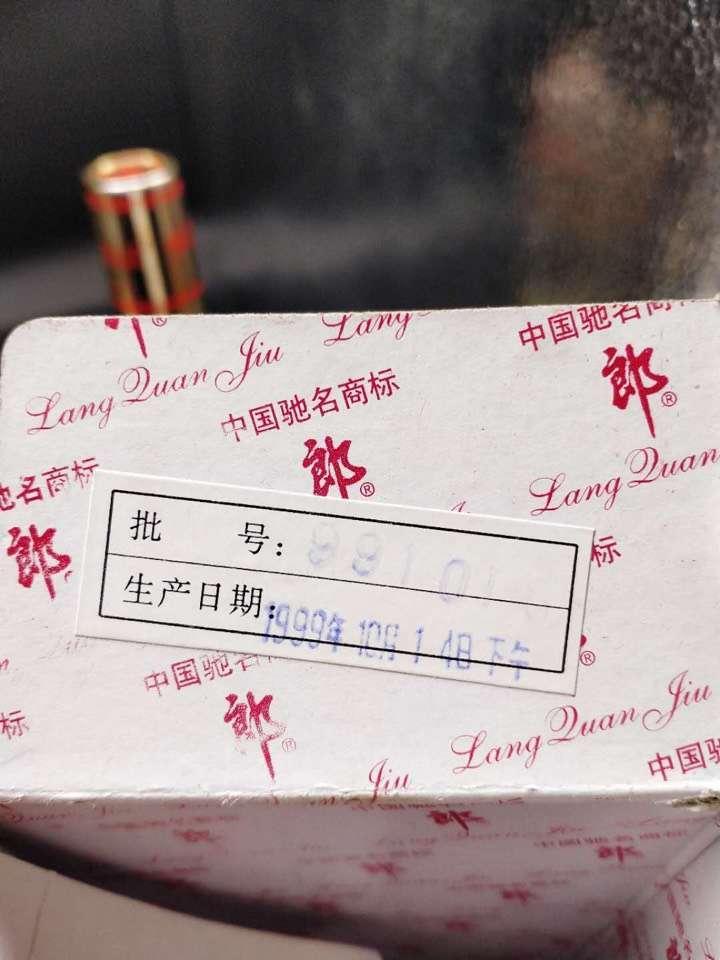 Lang
中国驰名商标
Lang Quan Jiu
郎®
中国驰名商标
郎®
Lang Quan
驰名商标
郎
批 号:
标
生产日期:
1999年10月14日下午
中国驰名
®
标
郎®
Lang Quan Jiu
中国驰
Jiu
郎
郎